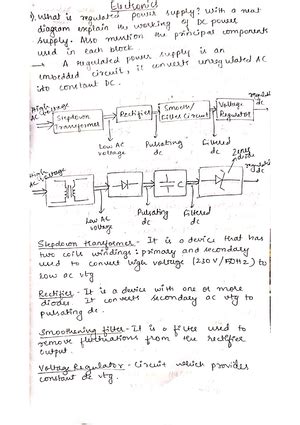 Electronics
1) What is regulated power supply? With a neat
diagram explain the working of DC power
supply. Also mention the principal components
used in each block.
→ A regulated power supply is an
imbedded circuit, it converts unregulated AC
into constant DC.
High
AC voltage
Stepdown
Transformer
Rectifier
Smooth/
Filter Circuit
Voltage
Regulator
regulated
dc
Low AC
voltage
Pulsating
dc
Filtered
dc
zener
diode
High
AC voltage
C
regulated
dc
Low AC
voltage
Pulsating
dc
Filtered
dc
Stepdown transformer - It is a device that has
two coils windings: primary and secondary
used to convert high voltage (230V/50Hz) to
low ac vtg
Rectifier - It is a device with one or more
diodes. It converts secondary ac vtg to
pulsating dc.
Smoothening filter - It is a filter used to
remove fluctuations from the rectifier
output.
Voltage Regulator - Circuit which provides
constant dc vtg.